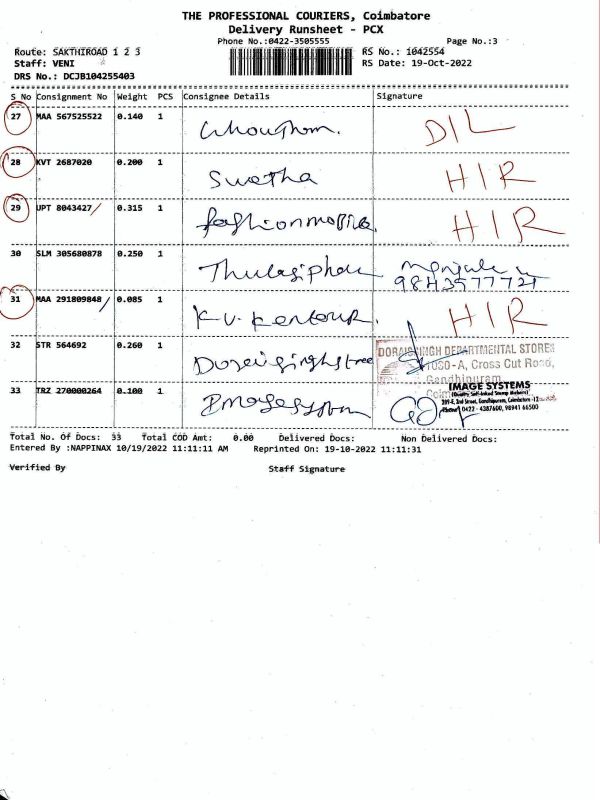 THE PROFESSIONAL COURIERS, Coimbatore
Delivery Runsheet - PCX
Phone No.:0422-3505555 Page No.:3
Route: SAKTHIROAD 1 2 3 RS No.: 1042554
Staff: VENI RS Date: 19-Oct-2022
DRS No.: DCJB104255403
S No Consignment No Weight PCS Consignee Details Signature
27 MAA 567525522 0.140 1 D/L
28 KVT 2687020 0.200 1 Swetha H/R
29 UPT 8043427/ 0.315 1 H/R
30 SLM 305680878 0.250 1
9843577721
31 MAA 291809848/ 0.085 1 K.V. H/R
32 STR 564692 0.260 1
DORAISINGH DEPARTMENTAL STORES
1080-A, Cross Cut Road,
Gandhipuram
33 TRZ 270000264 0.100 1
IMAGE SYSTEMS
(Quality Self-Inked Stamp Makers)
2nd Street, Gandhipuram, Coimbatore -12
Phone: 0422 - 4387600, 98941 66500
Total No. Of Docs: 33 Total COD Amt: 0.00 Delivered Docs: Non Delivered Docs:
Entered By :NAPPINAX 10/19/2022 11:11:11 AM Reprinted On: 19-10-2022 11:11:31
Verified By Staff Signature